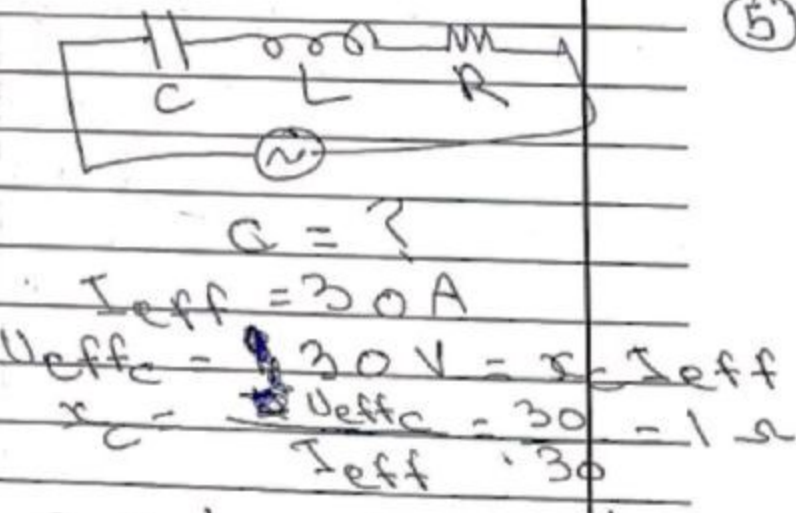 5
C L R
~
C = ?
I eff = 30 A
U eff c = 30 V = x c I eff
x c = U eff c / I eff = 30 / 30 = 1 Ω